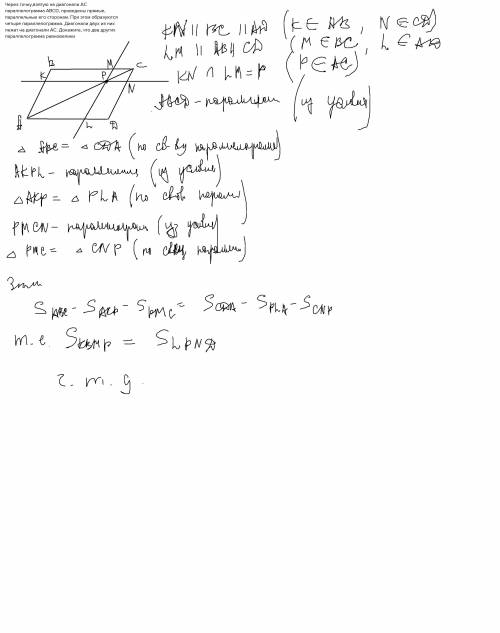 Через точку, взятую на диагонали АС
параллелограмма ABCD, проведены прямые,
параллельные его сторонам. При этом образуются
четыре параллелограмма. Диагонали двух из них
лежат на диагонали АС. Докажите, что два других
параллелограмма равновелики
KN || BC || AD (K ∈ AB, N ∈ CD)
LM || AB || CD (M ∈ BC, L ∈ AD)
KN ∩ LM = P (P ∈ AC)
ABCD - параллелограм (из условия)
B M C
K P N
A L D
△ ABC = △ CDA (по св-ву параллелограмма)
AKPL - параллелограмм (из условия)
△ AKP = △ PLA (по свой паралл)
PMCN - параллелограм (из условия)
△ PMC = △ CNP (по свой паралл)
Знач
S ABC - S AKP - S PMC = S CDA - S PLA - S CNP
т.е. S KBMP = S LPND
ч. т. д.